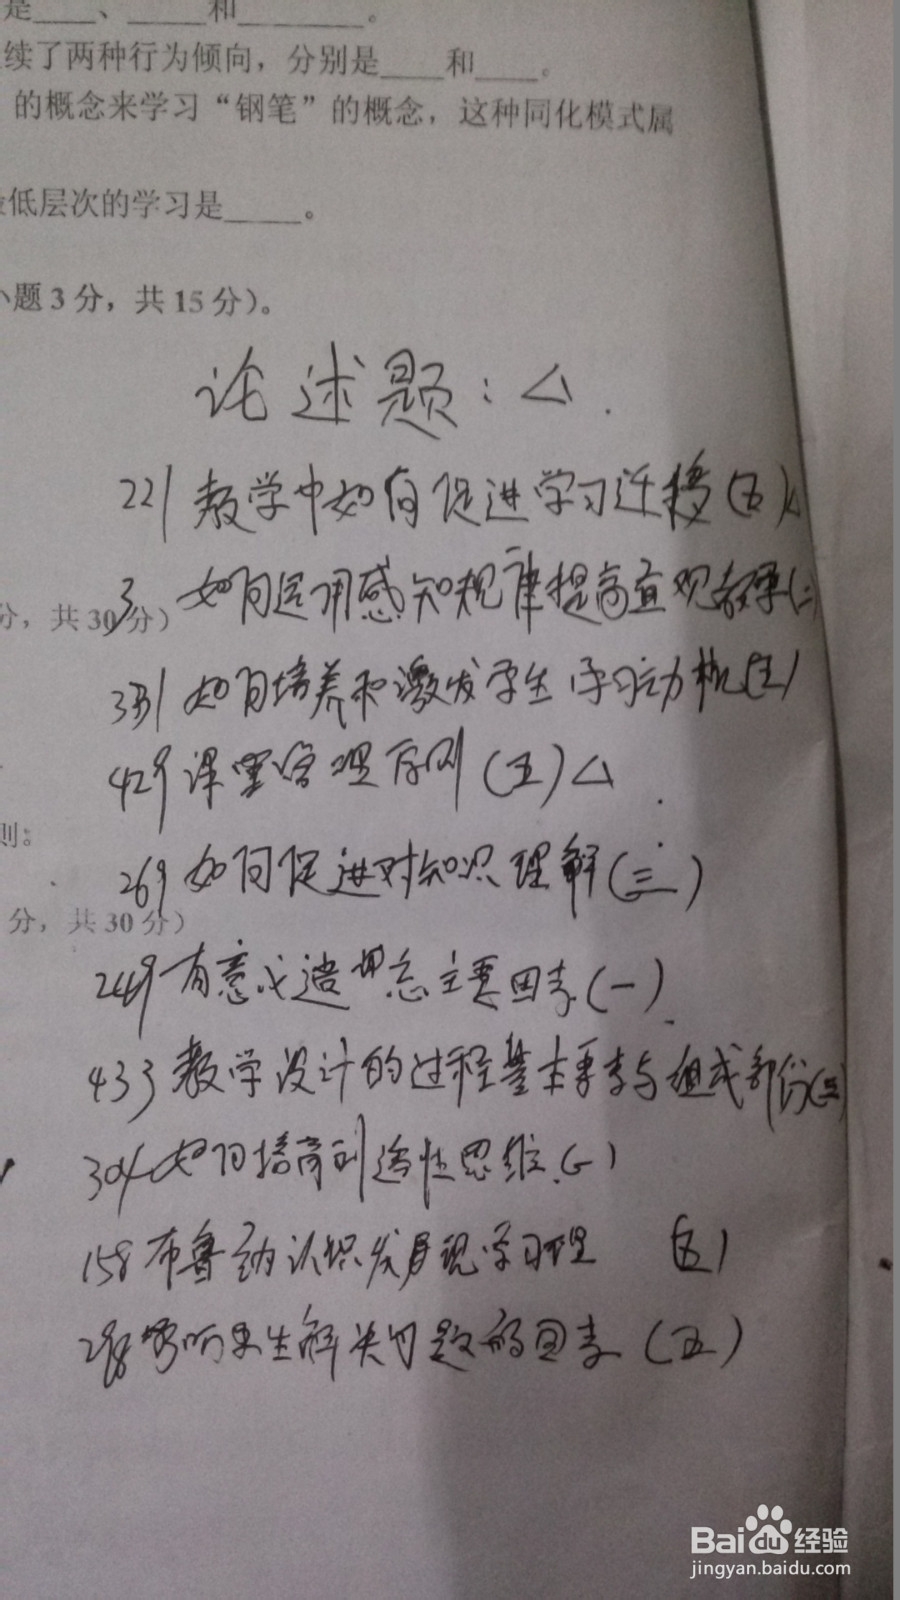 是____、____和________。
续了两种行为倾向，分别是____和____。
的概念来学习“钢笔”的概念，这种同化模式属
低层次的学习是_____。
小题3分，共15分）。
论述题：△.
221 教学中如何促进学习迁移(五)△
3 如何运用感知规律提高直观教学(二
分，共30分）
331 如何培养和激发学生学习动机(五)
429 课堂管理原则(五)△
则：
269 如何促进对知识理解(三)
分，共30分）
249 有意义遗忘主要因素(一)
433 教学设计的过程基本要素与组成部份(三)
304 如何培育创造性思维(一)
158 布鲁纳认识发现学习理 (五)
298 影响学生解决问题的因素(五)
Baidu经验
jingyan.baidu.com